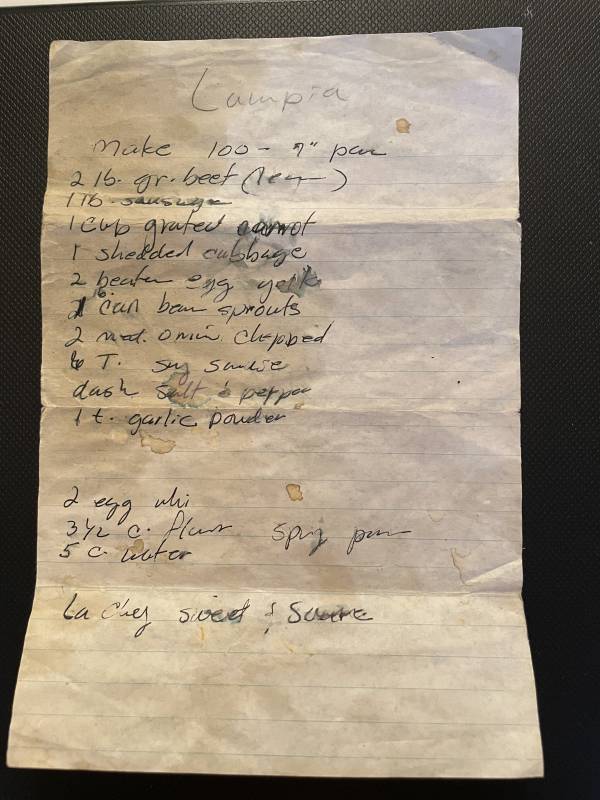 Lumpia
Make 100 - 7" pan
2 lb. gr. beef (lean)
1 lb. sausage
1 cup grated carrot
1 shedded cabbage
2 beaten egg yolk
can bean sprouts
2 med. onion chopped
6 T. soy sause
dash salt & pepper
1 t. garlic powder
2 egg whi
3 1/2 c. flour
5 c. water
La Choy sweet & Soure